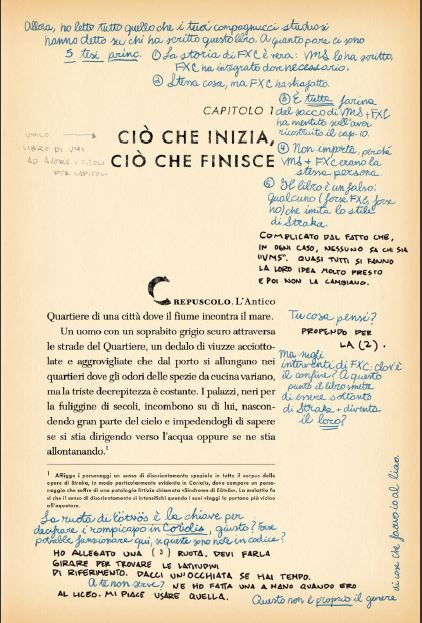 Allora, ho letto tutto quello che i tuoi compagnucci studiosi
hanno detto su chi ha scritto questo libro. A quanto pare ci sono
5 tesi princ. ① La storia di FXC è vera: VMS lo ha scritto,
FXC ha integrato dove necessario.
② Stessa cosa, ma FXC ha strafatto.
③ È tutta farina
del sacco di VMS + FXC
ha mentito sull'aver
ricostruito il cap. 10.
④ Non importa, perché
VMS + FXC erano la
stessa persona.
⑤ Il libro è un falso:
qualcuno (forse FXC, forse
no) che imita lo stile
di Straka.
COMPLICATO DAL FATTO CHE,
IN OGNI CASO, NESSUNO SA CHI SIA
"VMS". QUASI TUTTI SI FANNO
LA LORO IDEA MOLTO PRESTO
E POI NON LA CAMBIANO.
CAPITOLO 1
CIÒ CHE INIZIA,
CIÒ CHE FINISCE
UNICO
LIBRO DI VMS
AD AVERE I TITOLI
PER CAPITOLI
Tu cosa pensi?
PROPENDO PER
LA (2).
Ma sugli
interventi di FXC: dov'è
il confine? A questo
punto il libro smette
di essere soltanto
di Straka + diventa
il loro?
CREPUSCOLO. L'Antico
Quartiere di una città dove il fiume incontra il mare.
Un uomo con un soprabito grigio scuro attraversa
le strade del Quartiere, un dedalo di viuzze acciotto-
late e aggrovigliate che dal porto si allungano nei
quartieri dove gli odori delle spezie da cucina variano,
ma la triste decrepitezza è costante. I palazzi, neri per
la fuliggine di secoli, incombono su di lui, nascon-
dendo gran parte del cielo e impedendogli di sapere
se si stia dirigendo verso l'acqua oppure se ne stia
allontanando.¹
1 Affligge i personaggi un senso di disorientamento spaziale in tutto il corpus delle
opere di Straka, in modo particolarmente evidente in Coriolis, dove compare un perso-
naggio che soffre di una patologia fittizia chiamata «Sindrome di Eötvös». La malattia fa
sì che il senso di disorientamento si intensifichi quando i suoi viaggi lo portano più vicino
all'equatore.
La ruota di Eötvös è la chiave per
decifrare i rompicapo in Coriolis, giusto? Forse
potrebbe funzionare qui, se queste sono note in codice?
HO ALLEGATO UNA (3) RUOTA. DEVI FARLA
GIRARE PER TROVARE LE LATITUDINI
DI RIFERIMENTO. DACCI UN'OCCHIATA SE HAI TEMPO.
A te non serve? NE HO FATTA UNA A MANO QUANDO ERO
AL LICEO. MI PIACE USARE QUELLA.
Questo non è proprio il genere
di cose che facevo io al liceo.